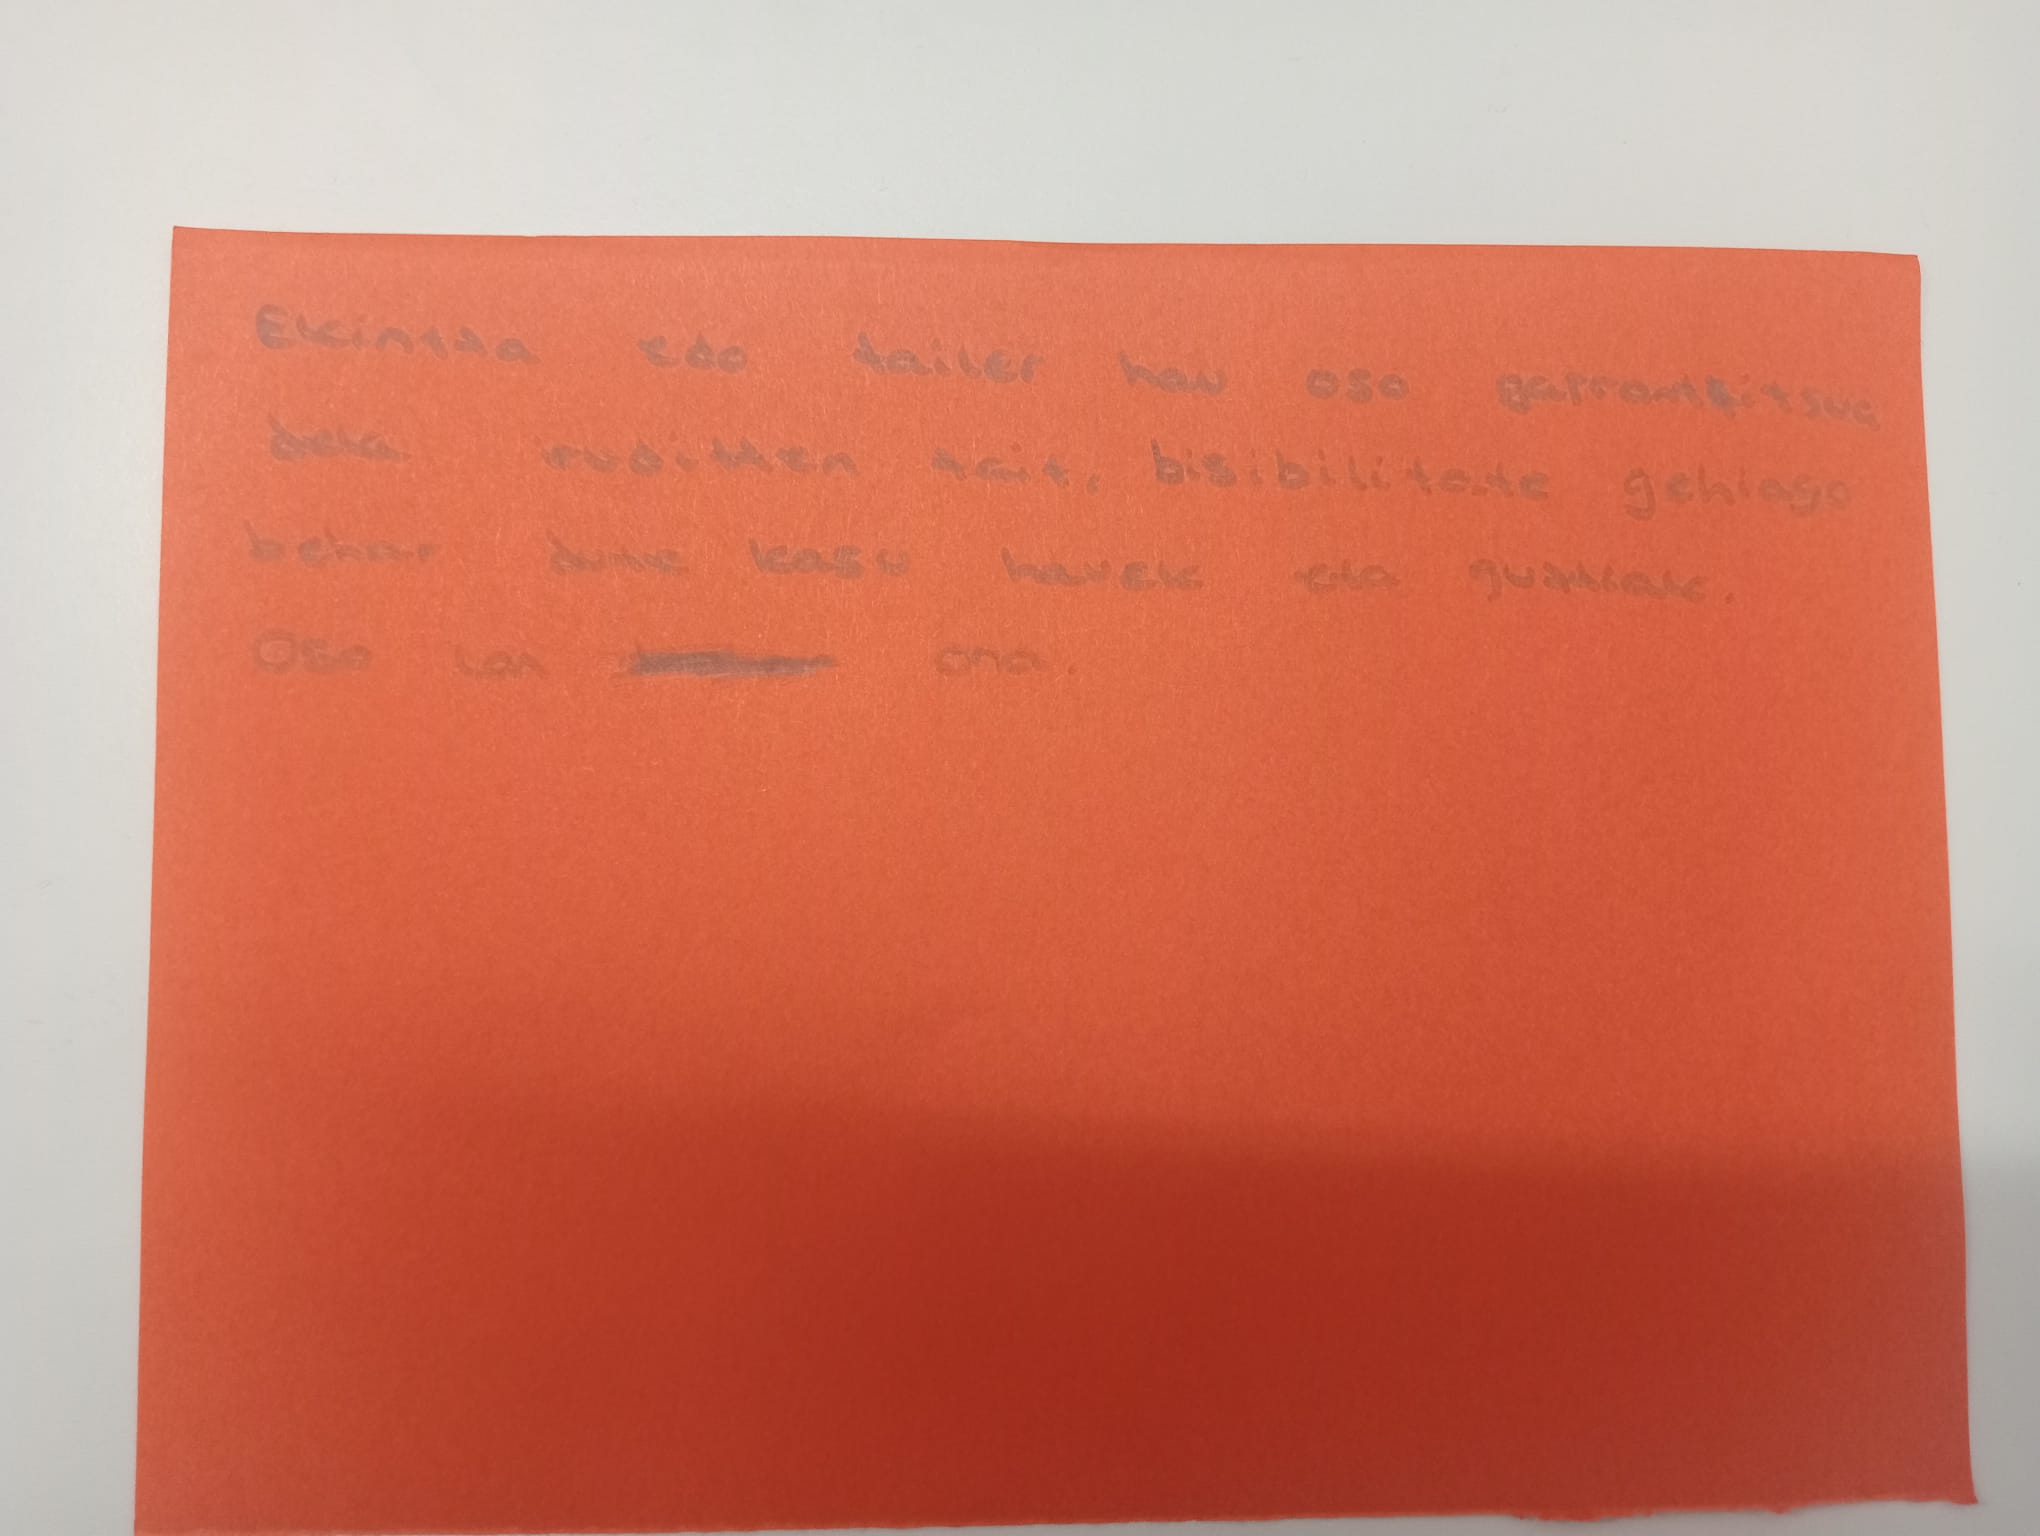 Ekintza edo tailer hau oso garrantzitsua
dela iruditzen zait, bisibilitate gehiago
behar dute kasu hauek eta guztiak.
Oso lan ona.